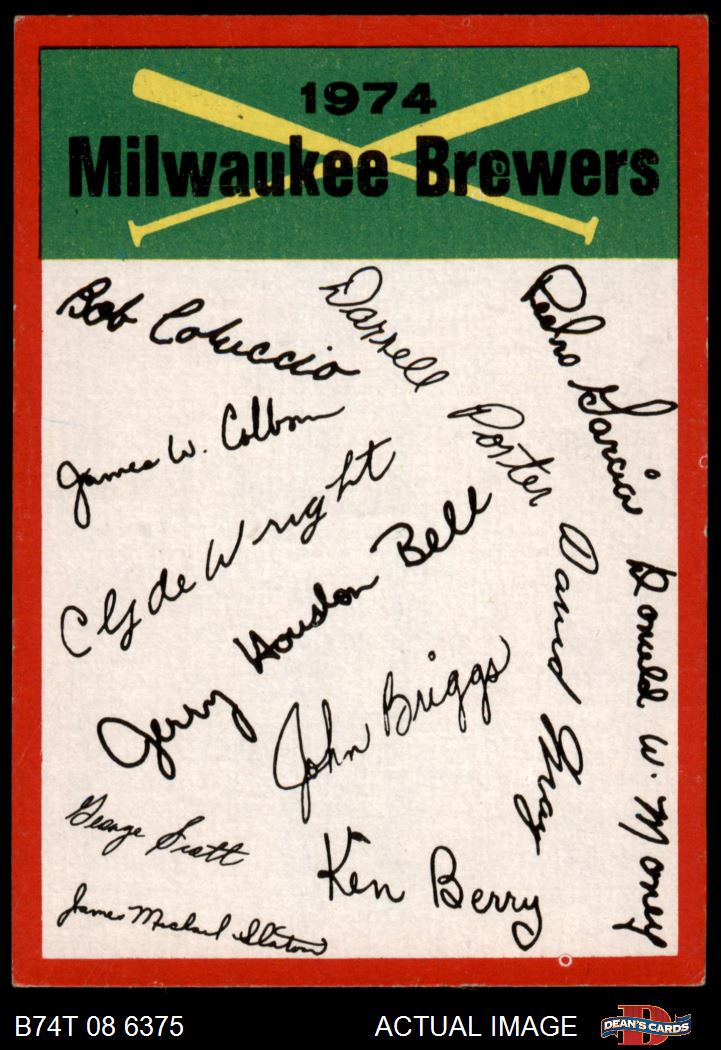 1974
Milwaukee Brewers
Bob Coluccio
Darrell Porter
Pedro Garcia
James W. Colborn
Clyde Wright
Jerry Houston Bell
David May
Donald W. Money
John Briggs
George Scott
Ken Berry
James Michael Slaton
B74T 08 6375
ACTUAL IMAGE
D
DEAN'S CARDS